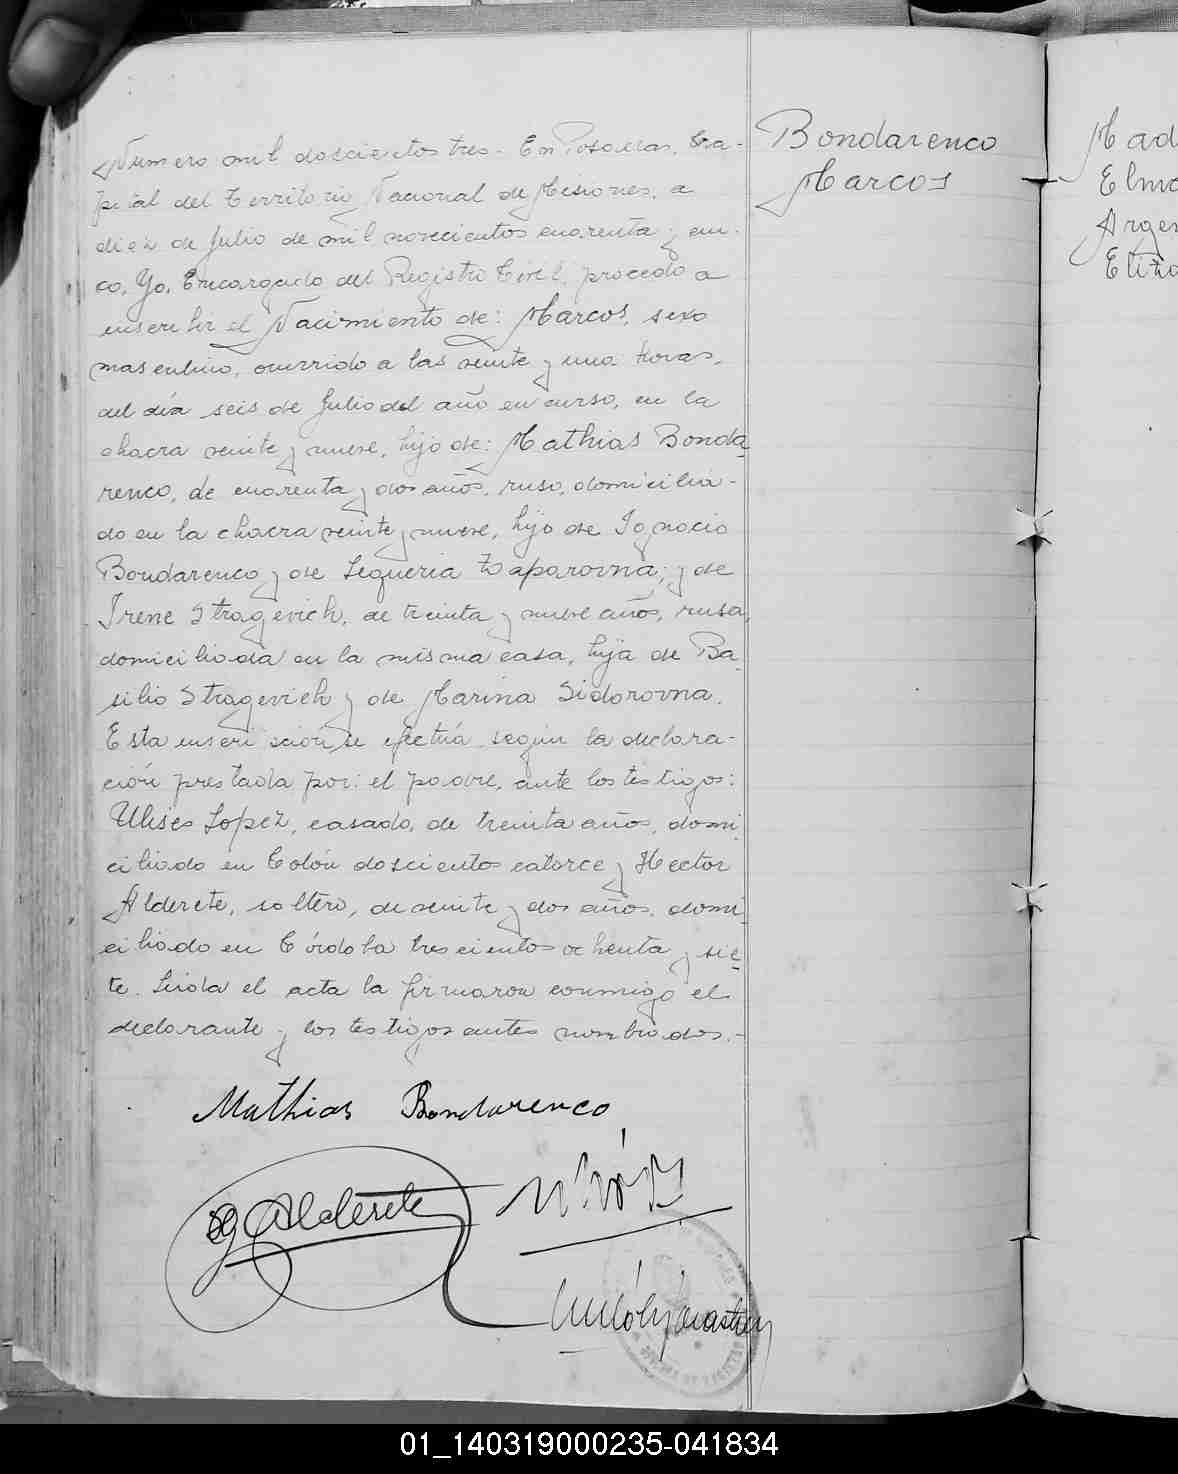 Numero mil doscientos tres. En Posadas, Ca-
pital del Territorio Nacional de Misiones, a
diez de Julio de mil novecientos cuarenta y cin-
co, Yo, Encargado del Registro Civil, procedo a
inscribir el Nacimiento de: Marcos, sexo
masculino, ocurrido a las veinte y una horas,
del día seis de Julio del año en curso, en la
chacra veinte y nueve, hijo de: Mathias Bonda
renco, de cuarenta y dos años, ruso, domicilia-
do en la chacra veinte y nueve, hijo de Ignacio
Bondarenco y de Sequeria Zaparovna; y de
Irene Stragevich, de treinta y nueve años, rusa,
domiciliada en la misma casa, hija de Ba
silio Stragevich y de Marina Sidorovna.
Esta inscripción se efectúa según la declara-
ción prestada por: el padre, ante los testigos:
Ulises Lopez, casado, de treinta años, domi
ciliado en Colón doscientos catorce y Hector
Alderete, soltero, de veinte y dos años, domi
ciliado en Córdoba trescientos ochenta y sie
te. Leida el acta la firmaron conmigo el
declarante y los testigos antes nombrados.-
Mathias Bondarenco
Alderete
Bondarenco
Marcos
Mad
Elma
Argen
Eliza
01_140319000235-041834